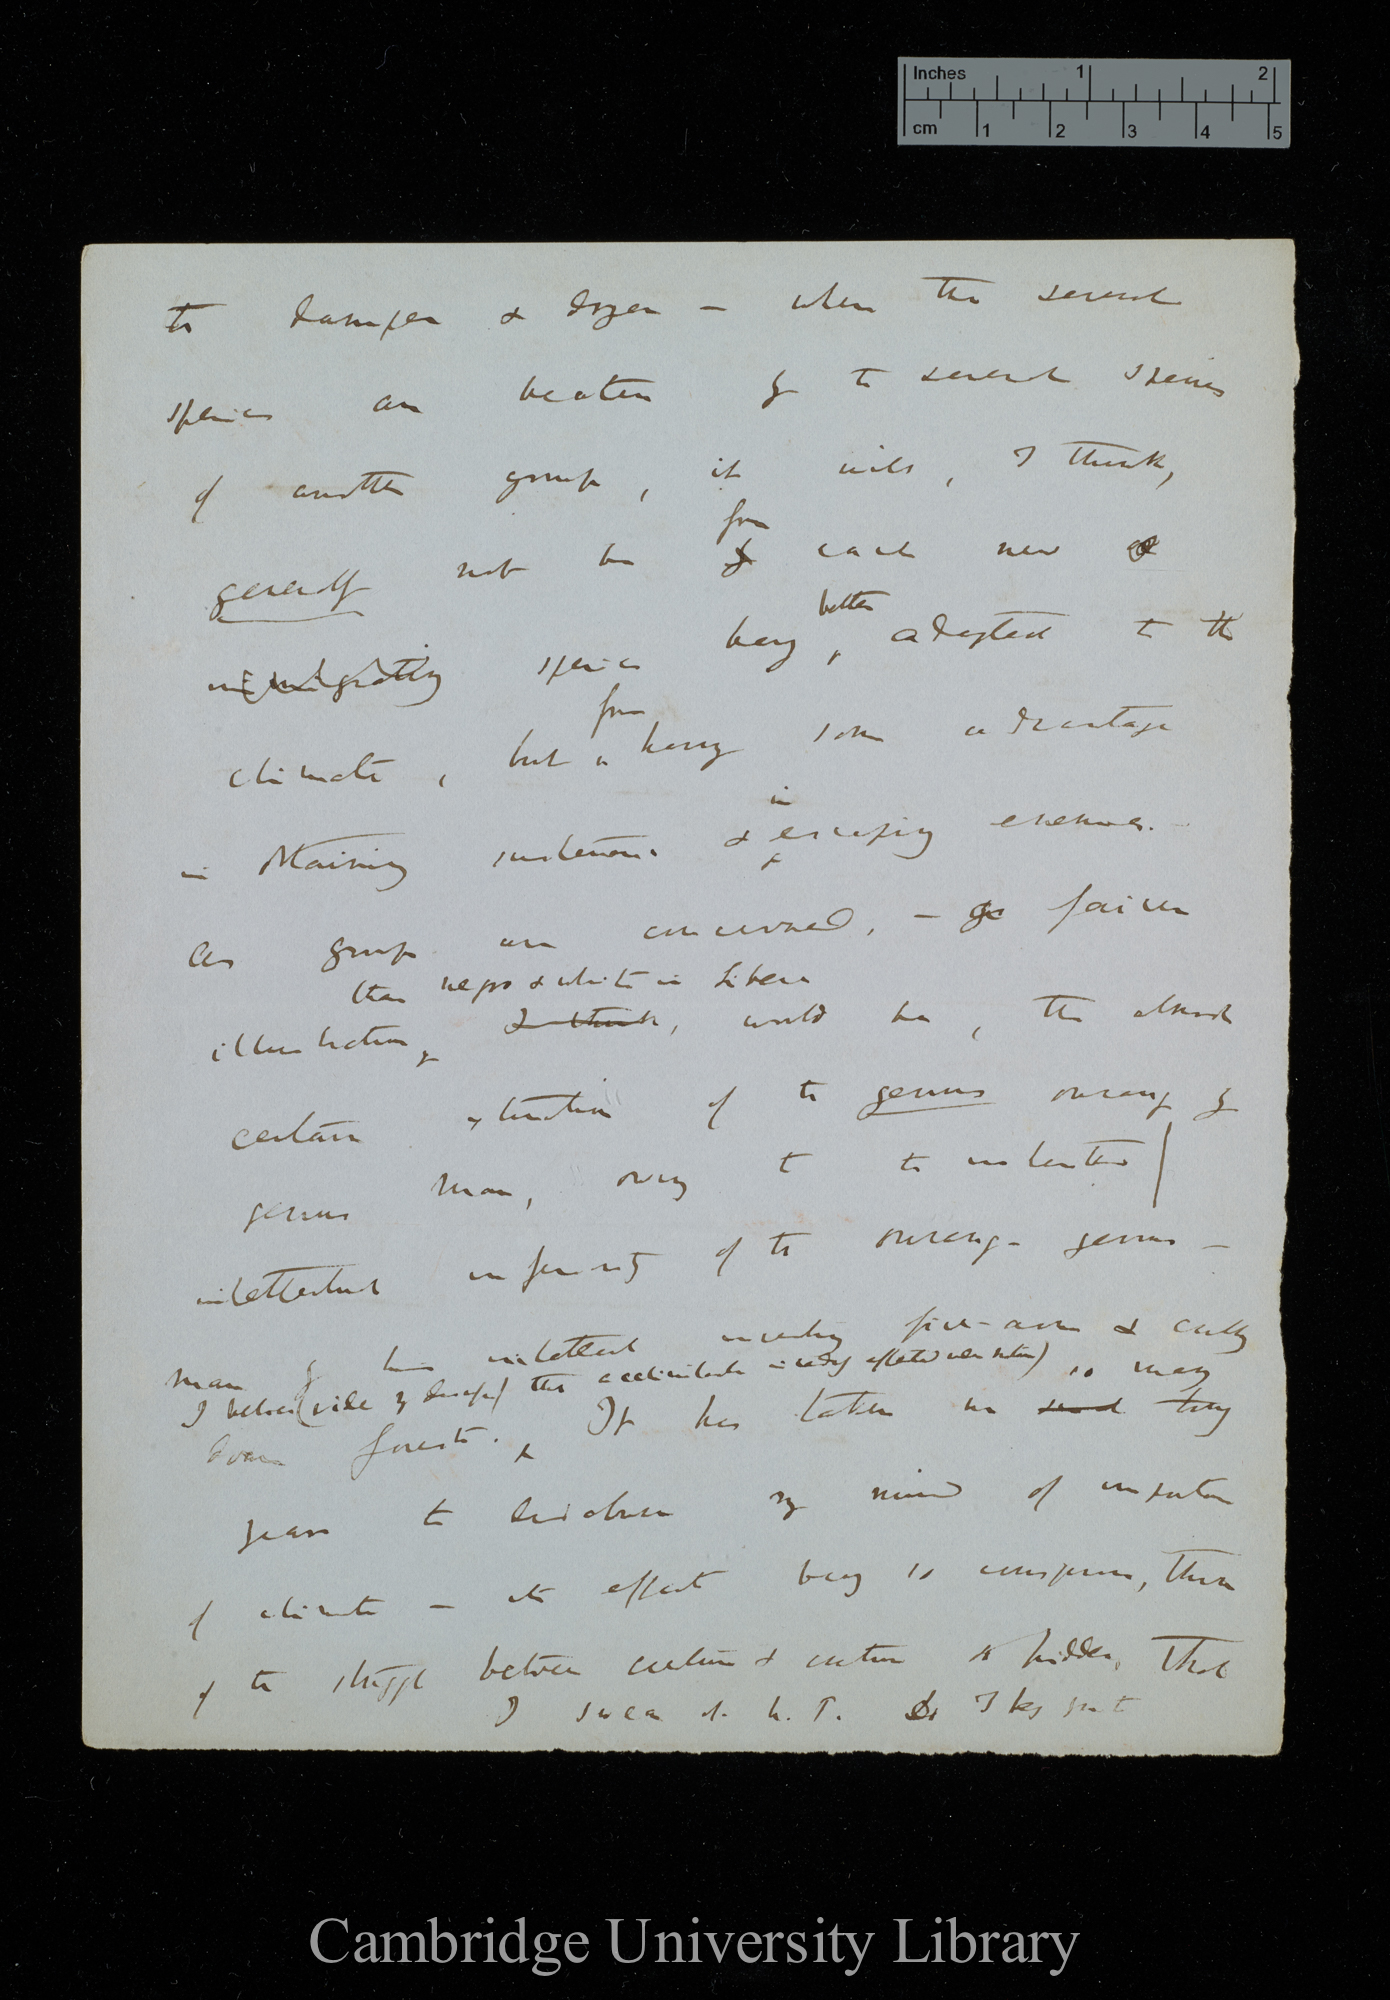 Inches 1 2
cm 1 2 3 4 5
to damper & dryer — when the several
species are beaten by the several species
of another group, it will, I think,
from
generally not be by each new
better
immigrating species being adapted to the
from
climate, but in having some advantage
in
in obtaining sustenance & escaping enemies. —
As groups are concerned, — fairer
than negro & white in Liberia
illustration, I think, would be, the almost
certain extinction of the genus ourang by
genus man, owing to the
intellectual inferiority of the ourang-genus —
man by his intellect inventing fire-arms & cutting
I believe (vide my discussion) that acclimatisation is readily effected under nature) so many
down forests. It has taken me so many
years to disabuse my mind of importance
of climate — its effect being so conspicuous, those
of the struggle between creature & creature so hidden, that
I swear at the N. P.
Cambridge University Library